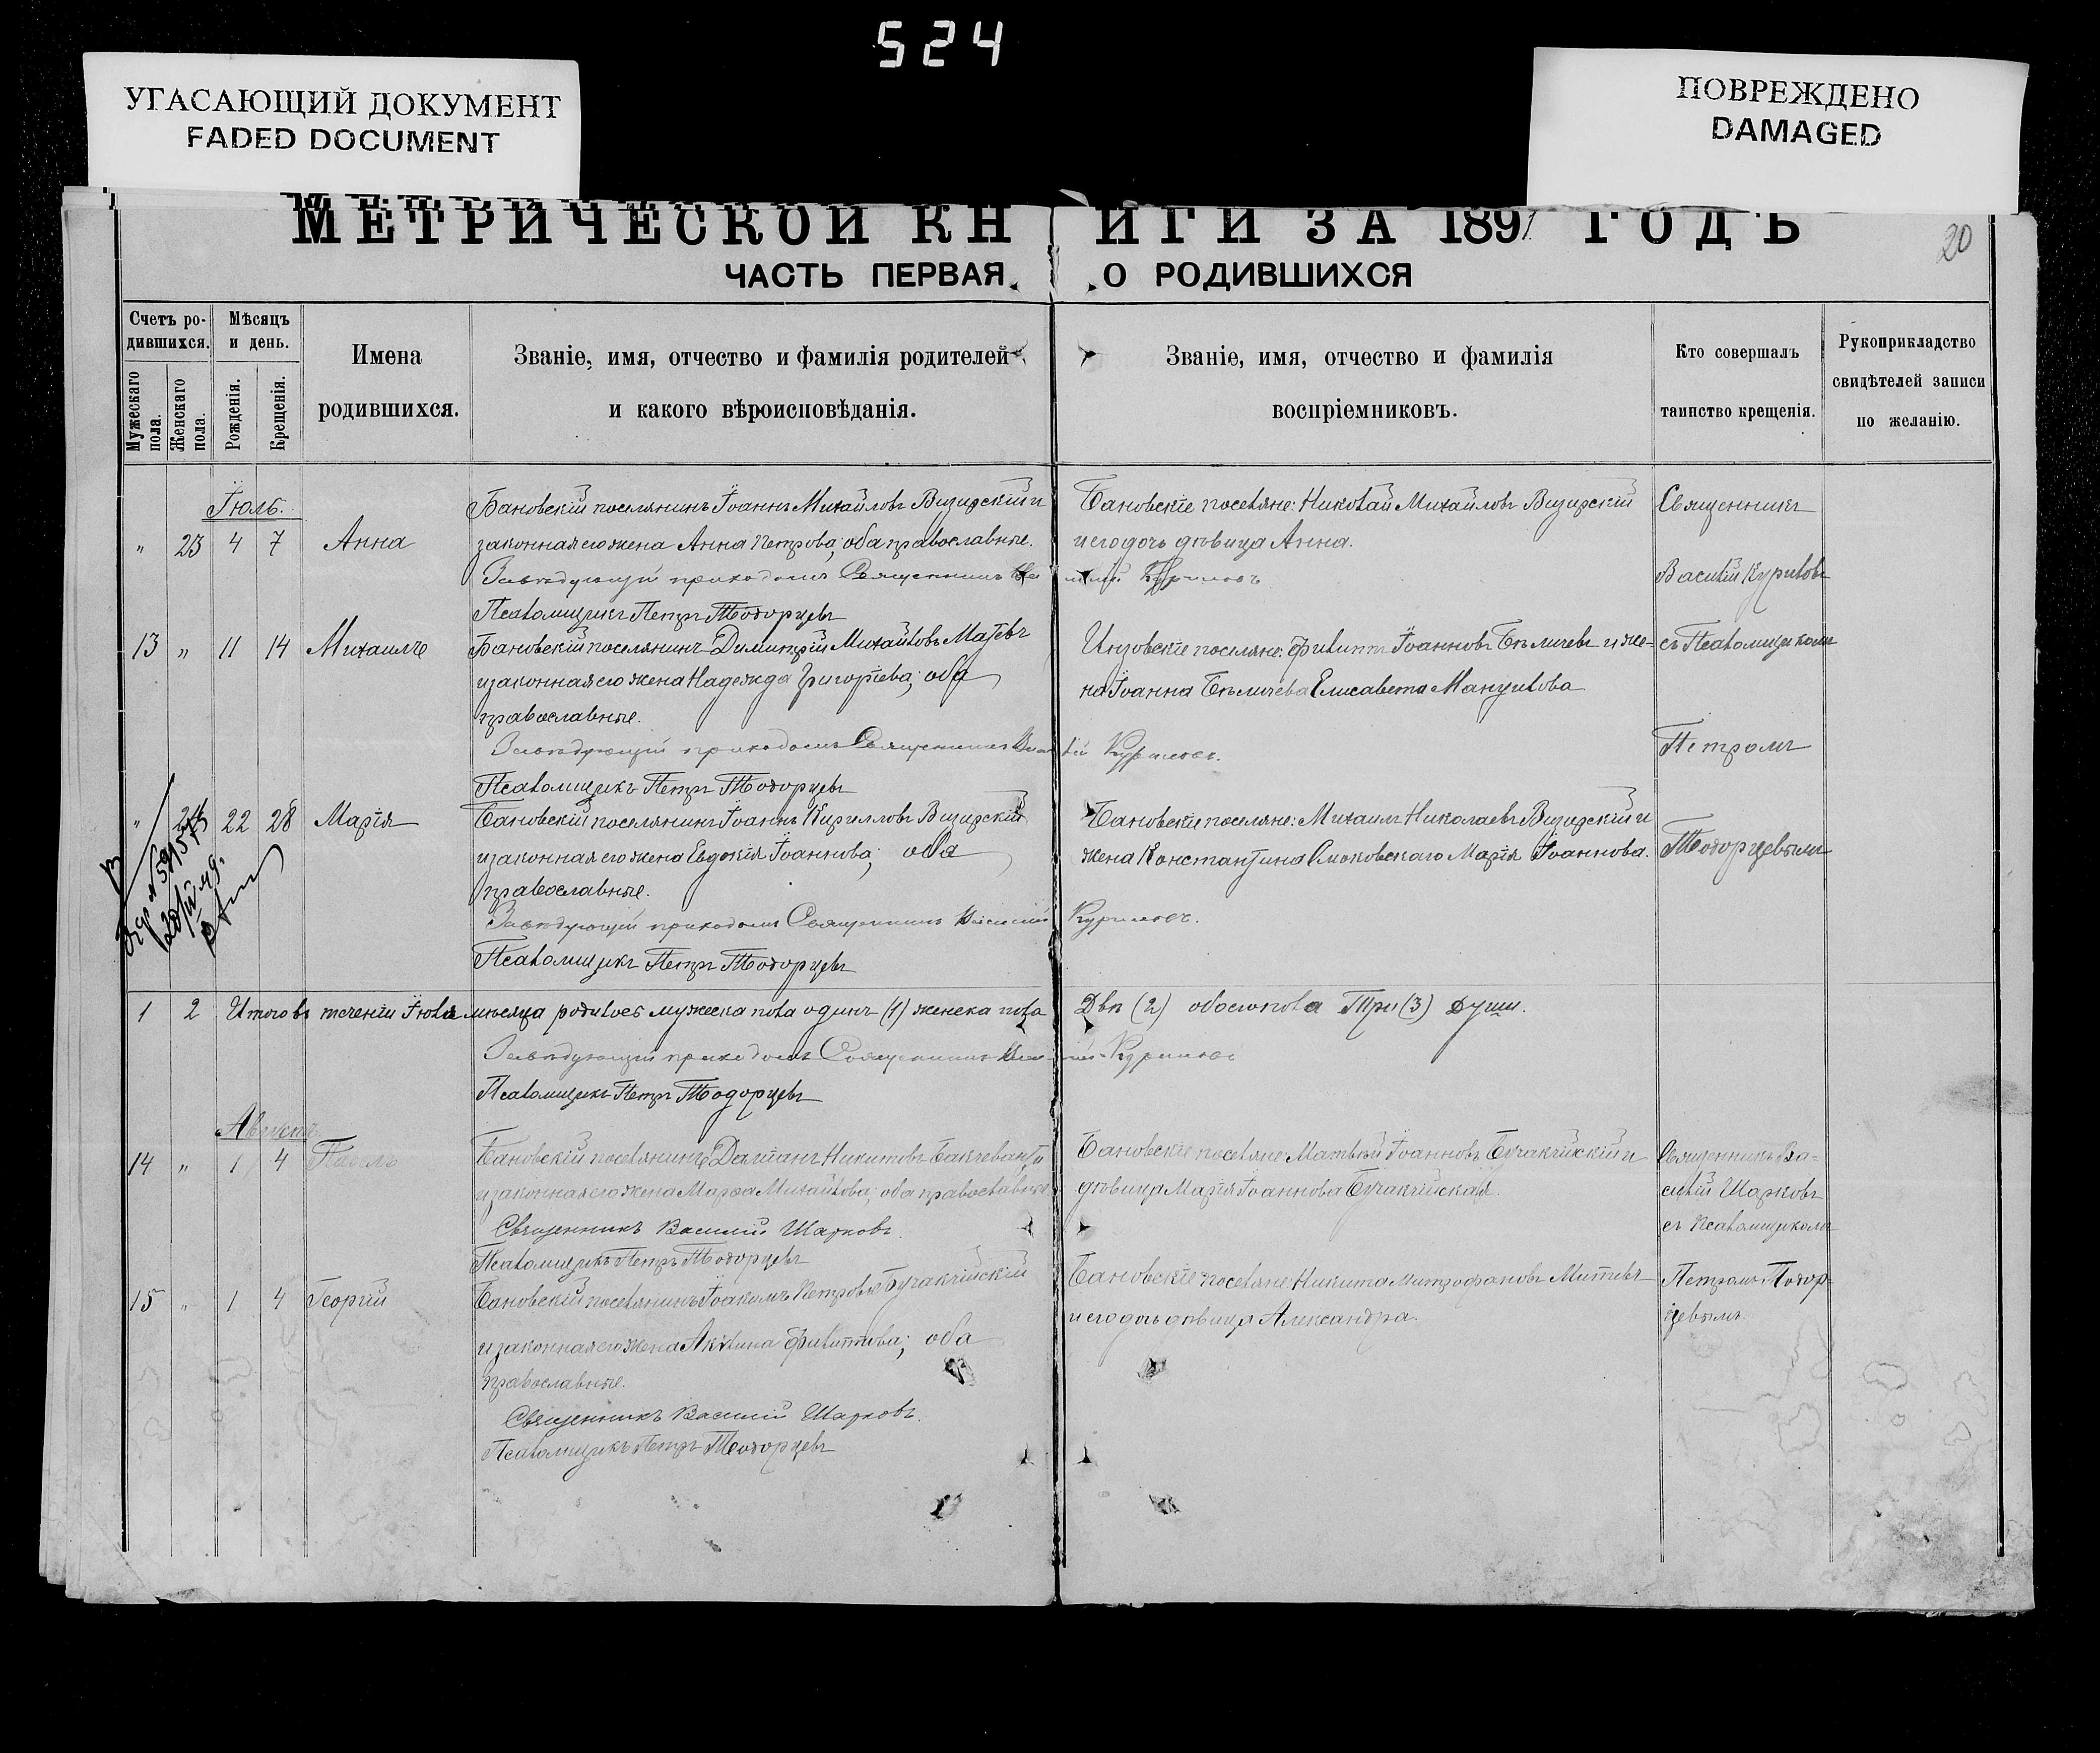 524
УГАСАЮЩИЙ ДОКУМЕНТ
FADED DOCUMENT
ПОВРЕЖДЕНО
DAMAGED
МЕТРИЧЕСКОЙ КНИГИ ЗА 1897 ГОДЪ
20
ЧАСТЬ ПЕРВАЯ, О РОДИВШИХСЯ
Счетъ ро-
дившихся.
Мужескаго пола.
Женскаго пола.
Мѣсяцъ
и день.
Рожденія.
Крещенія.
Имена
родившихся.
Званіе, имя, отчество и фамилія родителей
и какого вѣроисповѣданія.
Званіе, имя, отчество и фамилія
воспріемниковъ.
Кто совершалъ
таинство крещенія.
Рукоприкладство
свидѣтелей записи
по желанію.
Іюль.
" 23 4 7 Анна
Бановскій поселянинъ Іоаннъ Михайловъ Визирскій и
законная его жена Анна Петрова, оба православные.
Завѣдующій приходомъ Священникъ Василій Куриловъ
Псаломщикъ Петръ Тодорцевъ
Бановскіе поселяне: Николай Михайловъ Визирскій
и его дочь дѣвица Анна.
Священникъ
Василій Куриловъ
13 " 11 14 Михаилъ
Бановскій поселянинъ Димитрій Михайловъ
и законная его жена Надежда Григорiева; оба
православные.
Завѣдующій приходомъ Священникъ Василій Куриловъ.
Псаломщикъ Петръ Тодорцевъ
Инзовскіе поселяне: Филиппъ Іоанновъ Бѣличевъ и же-
на Іоанна Бѣличева Елисавета Мануилова
съ Псаломщикомъ
Петромъ
" 24 22 28 Марія
Бановскій поселянинъ Іоаннъ Кирилловъ Визирскій
и законная его жена Евдокія Іоаннова; оба
православные.
Завѣдующій приходомъ Священникъ Василій Куриловъ.
Псаломщикъ Петръ Тодорцевъ
Бановскіе поселяне: Михаилъ Николаевъ Визирскій и
жена Константина Марія Іоаннова.
Тодорцевымъ
1 2 Итого въ теченіи Іюля мѣсяца родилось мужеска пола одинъ (1) женска пола Двѣ (2) обоего пола Три (3) души.
Завѣдующій приходомъ Священникъ Василій Куриловъ
Псаломщикъ Петръ Тодорцевъ
Августъ
14 " 1 4 Павелъ
Бановскій поселянинъ Даміанъ Никитовъ
и законная его жена Марѳа Михайлова; оба православные
Священникъ Василій Шарковъ.
Псаломщикъ Петръ Тодорцевъ
Бановскіе поселяне: Матвѣй Іоанновъ Бучакчійскій и
дѣвица Марія Іоаннова Бучакчійская.
Священникъ Ва-
силій Шарковъ
съ Псаломщикомъ
15 " 1 4 Георгій
Бановскій поселянинъ Іоакимъ Петровъ Бучакчійскій
и законная его жена Акилина Филиппова; оба
православные.
Священникъ Василій Шарковъ.
Псаломщикъ Петръ Тодорцевъ
Бановскіе поселяне: Никита Митрофановъ Митевъ
и его дочь дѣвица Александра.
Петромъ Тодор-
цевымъ.